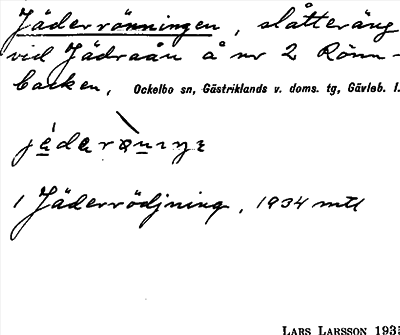 Jäderrönningen, slåtteräng
vid Jädraån å nr 2 Rönn-
backen, Ockelbo sn, Gästriklands v. doms. tg, Gävleb. l.
1 Jäderrödjning, 1934 mtl
LARS LARSSON 1935